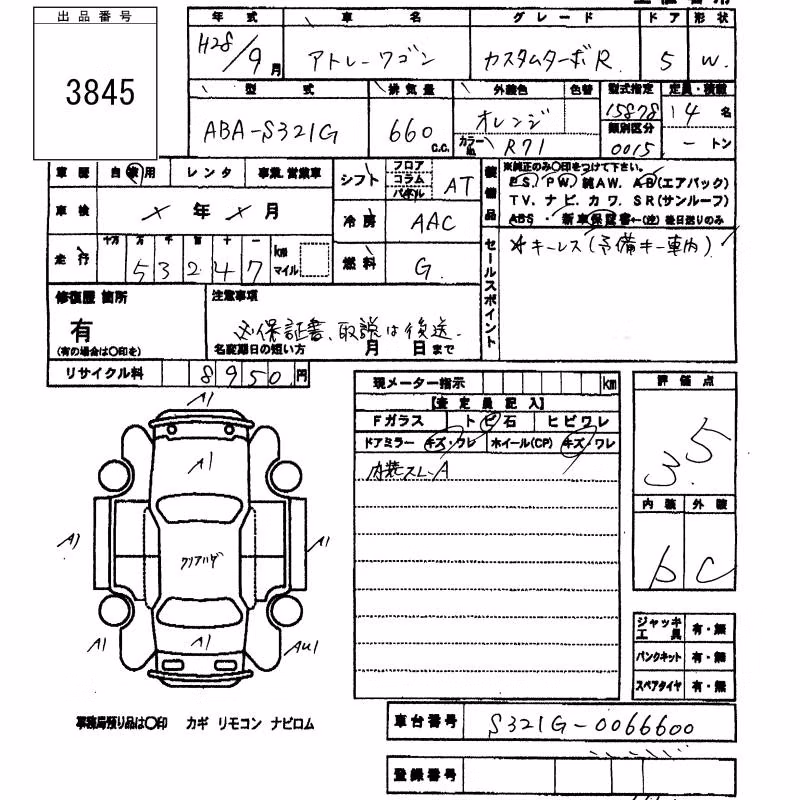 出品番号
3845
年式 車名 グレード ドア 形状
H28/9月 アトレーワゴン カスタムターボR 5 W.
型式 排気量 外装色 色替 型式指定 定員・積載
ABA-S321G 660 c.c. オレンジ 15878 4 名
カラーNo. R71 類別区分 0015 - トン
車歴 自家用 レンタ 事業.営業車 シフト フロア コラム パネル AT
装備品
※純正のみ〇印をつけて下さい。
PS, PW, 純AW, AB(エアバック)
TV, ナビ, カワ, SR(サンルーフ)
ABS ・ 新車保証書←(注) 後日送りのみ
車検 × 年 × 月 冷房 AAC
走行 十万 万 千 百 十 一 km マイル
53247
燃料 G.
セールスポイント
キーレス(予備キー車内)
修復歴 箇所
有
(有の場合は〇印を)
注意事項
保証書、取説は後送.
名変期日の短い方 月 日まで
リサイクル料 8950円
現メーター指示 km
【査定員記入】
Fガラス トビ石 ヒビワレ
ドアミラー キズ・ワレ ホイール(CP) キズ・ワレ
内装スレ-A
評価点
3.5
内装 外装
b C
A1
A1
A1 クリアハゲ A1
A1 A1 AU1
ジャッキ工具 有・無
パンクキット 有・無
スペアタイヤ 有・無
事務局預り品は〇印 カギ リモコン ナビロム
車台番号 S321G-0066600
登録番号